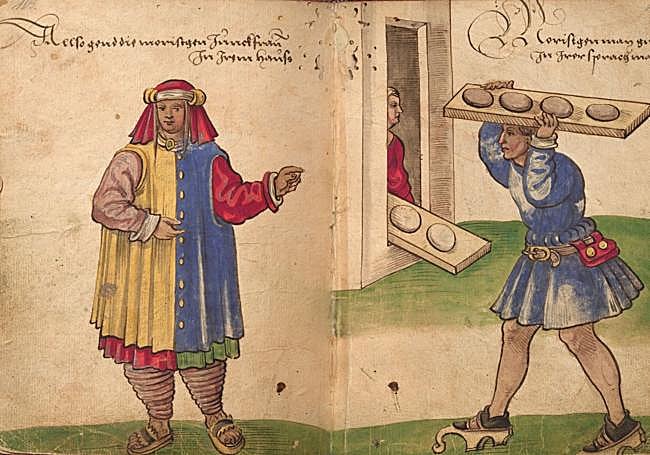 Allso gend die moristgen Junckfraw
In Irem hauss
Moristgen man
In Irer sprach